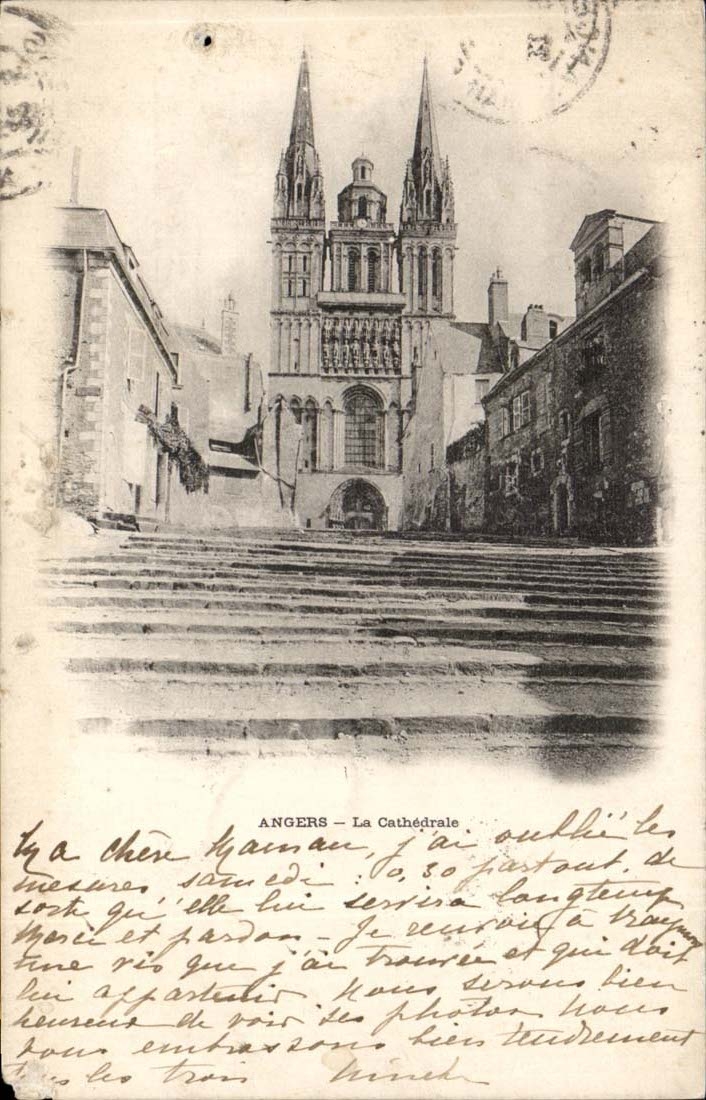 ANGERS — La Cathédrale
Ma chère Maman, j'ai oublié les
mesures samedi : 0,30 partout. de
sorte qu'elle lui servira longtemps
Merci et pardon — Je renvoie à Raymond
une vis que j'ai trouvée et qui doit
lui appartenir. Nous serons bien
heureux de voir ses photos. Nous
vous embrassons bien tendrement
tous les trois